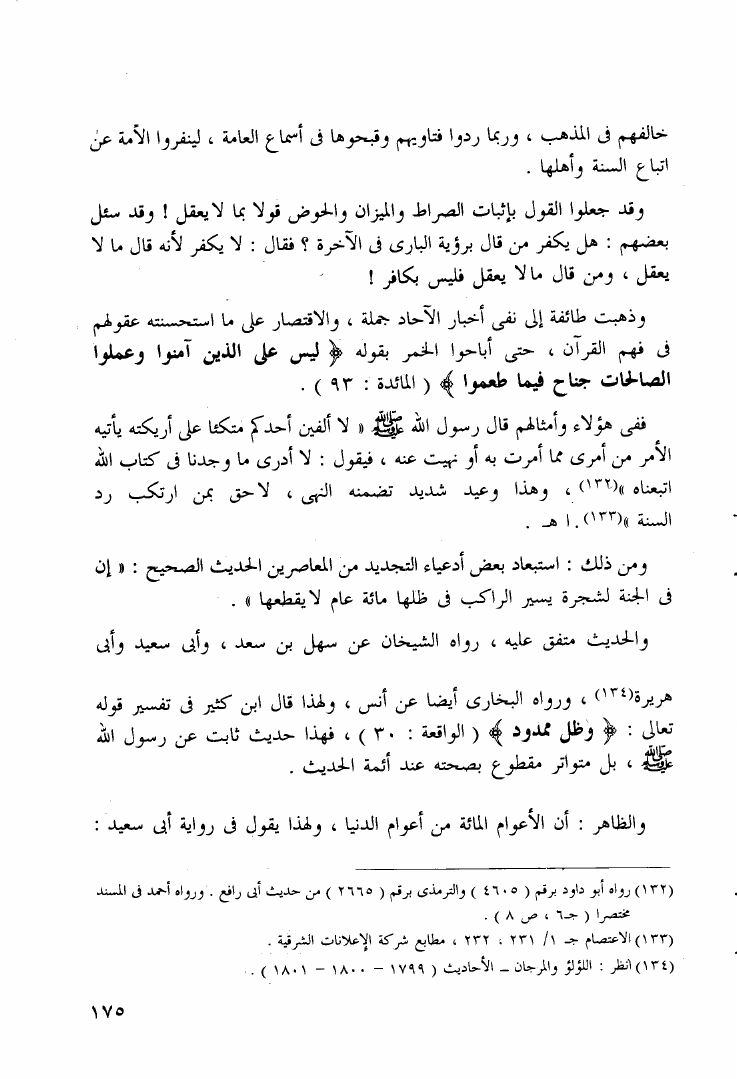 خالفهم فى المذهب ، وربما ردوا فتاويهم وقبحوها فى أسماع العامة ، لينفروا الأمة عن
اتباع السنة وأهلها .
وقد جعلوا القول بإثبات الصراط والميزان والحوض قولا بما لا يعقل ! وقد سئل
بعضهم : هل يكفر من قال برؤية البارى فى الآخرة ؟ فقال : لا يكفر لأنه قال ما لا
يعقل ، ومن قال مالا يعقل فليس بكافر !
وذهبت طائفة إلى نفى أخبار الآحاد جملة ، والاقتصار على ما استحسنته عقولهم
فى فهم القرآن ، حتى أباحوا الخمر بقوله ﴿ ليس على الذين آمنوا وعملوا
الصالحات جناح فيما طعموا ﴾ ( المائدة : ٩٣ ) .
ففى هؤلاء وأمثالهم قال رسول الله ﷺ « لا ألفين أحدكم متكئا على أريكته يأتيه
الأمر من أمرى مما أمرت به أو نهيت عنه ، فيقول : لا أدرى ما وجدنا فى كتاب الله
اتبعناه »(١٣٢) ، وهذا وعيد شديد تضمنه النهى ، لاحق بمن ارتكب رد
السنة »(١٣٣) . ا هـ .
ومن ذلك : استبعاد بعض أدعياء التجديد من المعاصرين الحديث الصحيح : « إن
فى الجنة لشجرة يسير الراكب فى ظلها مائة عام لايقطعها » .
والحديث متفق عليه ، رواه الشيخان عن سهل بن سعد ، وأبى سعيد وأبى
هريرة(١٣٤) ، ورواه البخارى أيضا عن أنس ، ولهذا قال ابن كثير فى تفسير قوله
تعالى : ﴿ وظل ممدود ﴾ ( الواقعة : ٣٠ ) ، فهذا حديث ثابت عن رسول الله
ﷺ ، بل متواتر مقطوع بصحته عند أئمة الحديث .
والظاهر : أن الأعوام المائة من أعوام الدنيا ، ولهذا يقول فى رواية أبى سعيد :
(١٣٢) رواه أبو داود برقم ( ٤٦٠٥ ) والترمذى برقم ( ٢٦٦٥ ) من حديث أبى رافع . ورواه أحمد فى المسند
مختصرا ( جـ٦ ، ص ٨ ) .
(١٣٣) الاعتصام جـ ١/ ٢٣١ ، ٢٣٢ ، مطابع شركة الإعلانات الشرقية .
(١٣٤) انظر : اللؤلؤ والمرجان ــ الأحاديث ( ١٧٩٩ – ١٨٠٠ – ١٨٠١ ) .
١٧٥